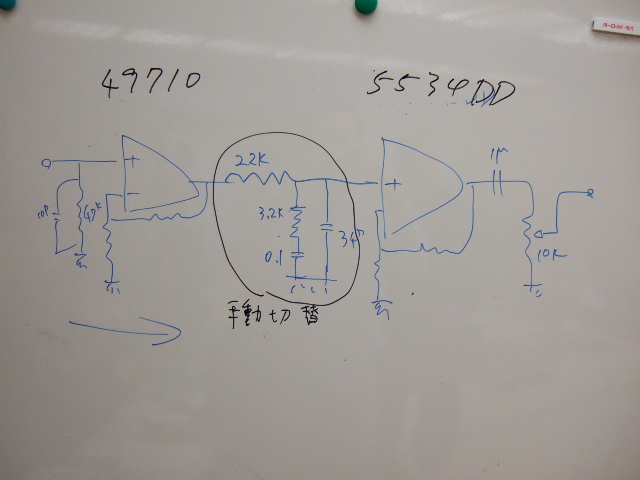 49710
5534DD
1μ
22K
+
+
-
10P
47K
3.2K
0.1
10K
手動切替